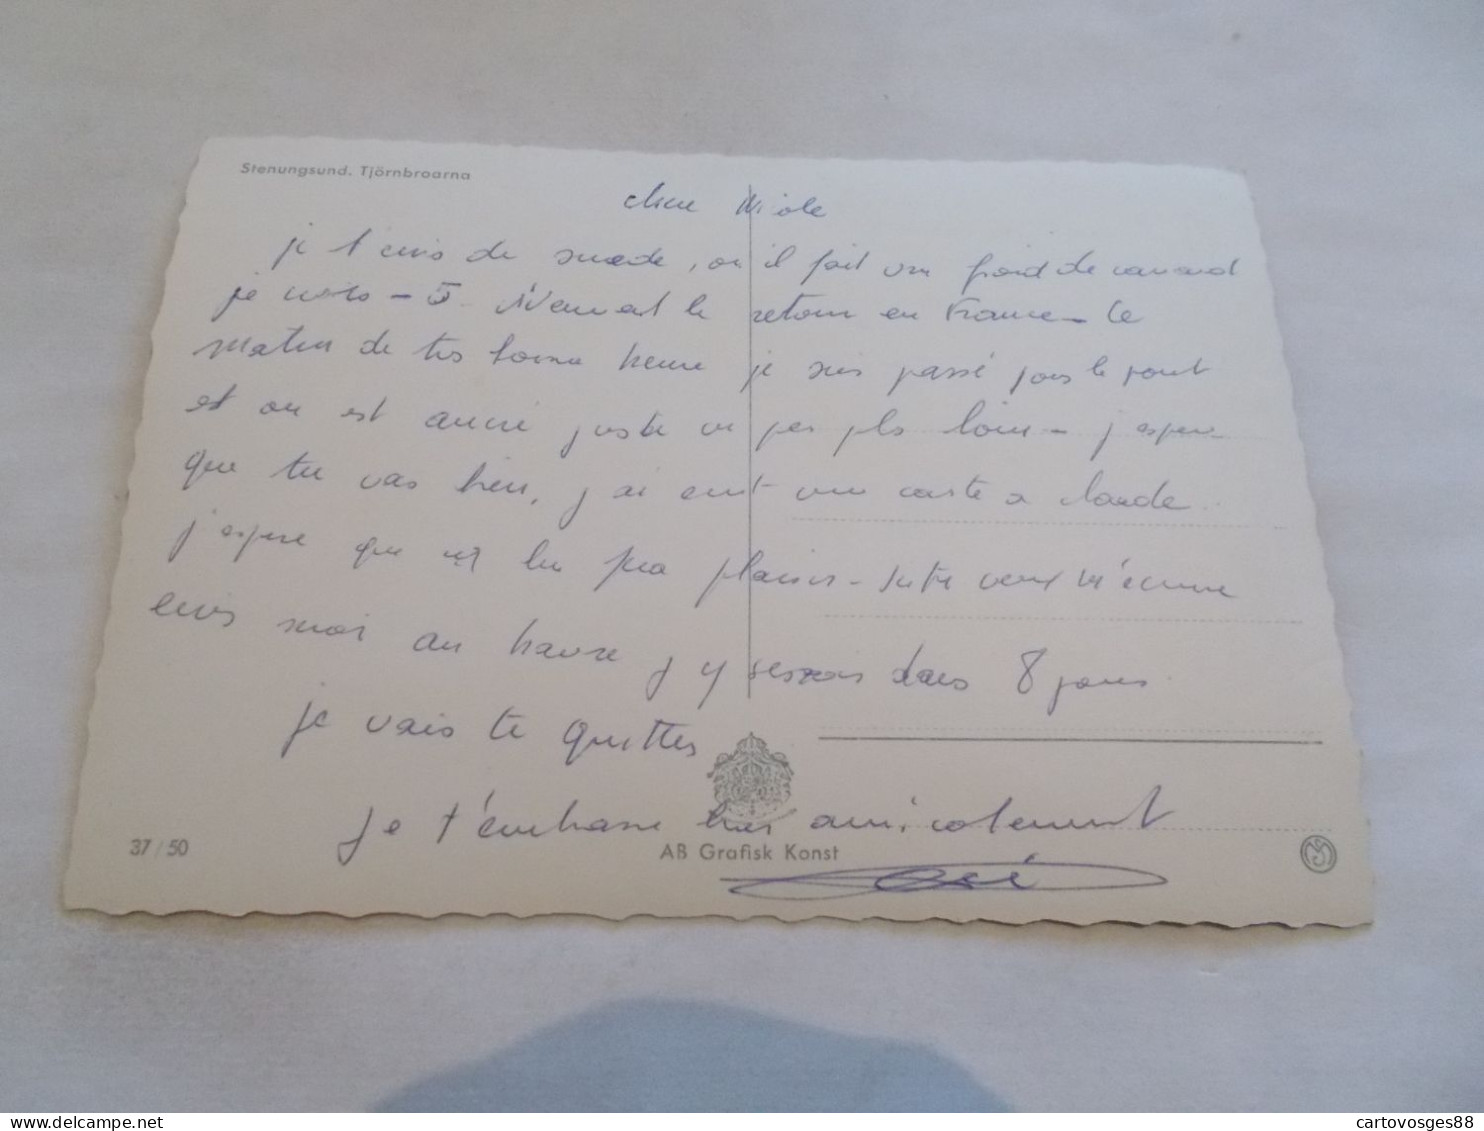 Stenungsund. Tjörnbroarna
chere Nicole
je t'ecris de suede, ou il fait un froid de canard
je crois - 5 le retour en France - Ce
matin de tres bonne heure je suis passé sous le pont
et on est ancré juste un peu pls loin - j'espere
que tu vas bien, j'ai ecrit une carte a
j'espere que lui fera plaisir - si tu veux m'ecrire
ecris moi au havre j'y serais dans 8 jours
je vais te quitter
Je t'embrasse bien amicalement
37/50
AB Grafisk Konst
cartovosges88